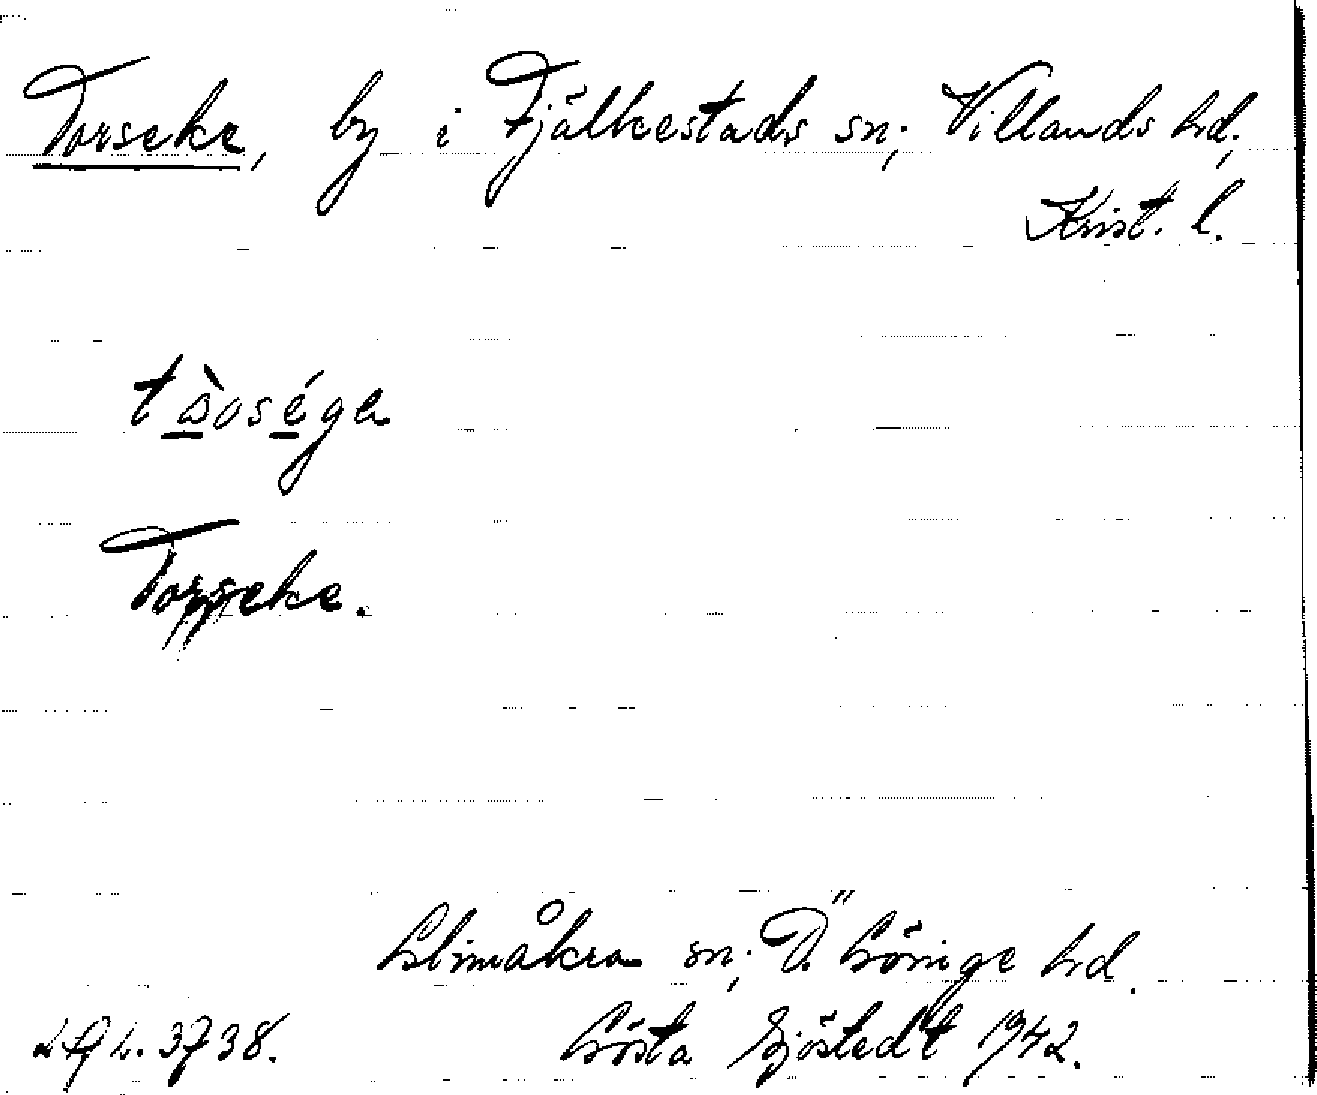 Torseke, by i Fjälkestads sn; Villands hd,
Krist. l.
Torseke.
Glimåkra sn; Ö. Göinge hd.
3738. Gösta Sjöstedt 1942.